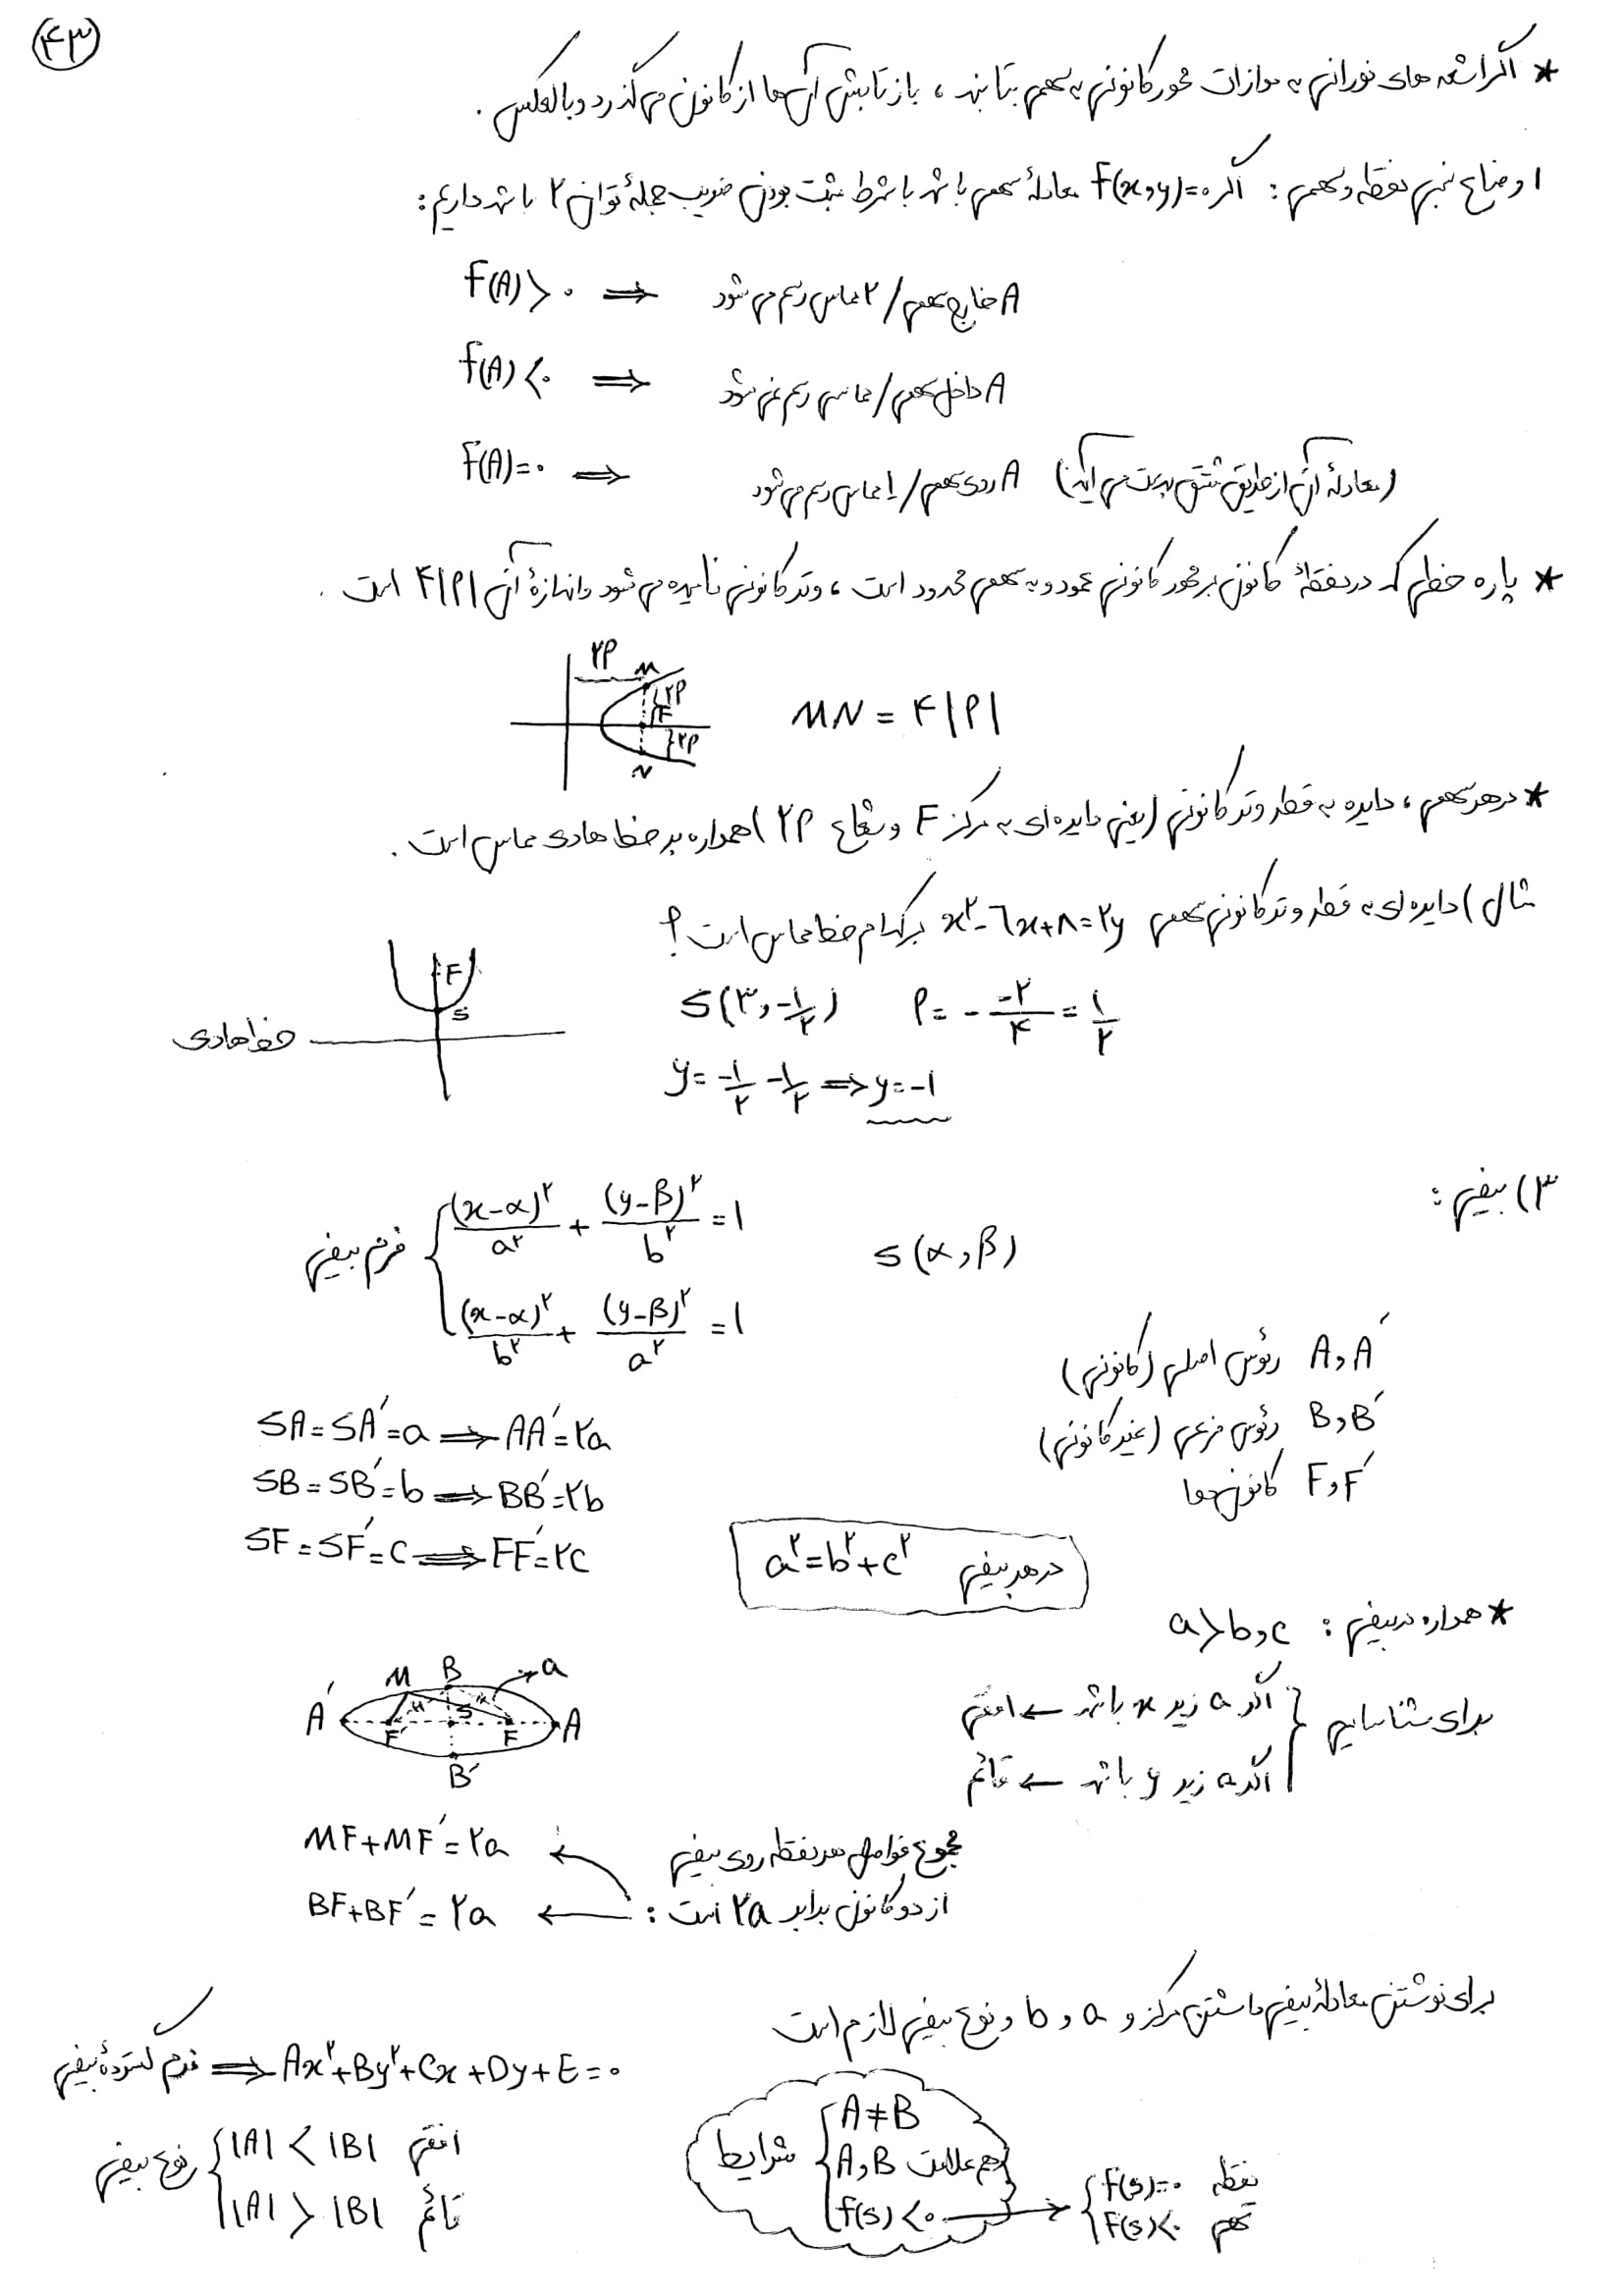 ۴۳
* اگر اشعه های نورانی به موازات محور کانونی به سهمی بتابند ، بازتابش آن ها از کانون می گذرد و بالعکس .
اوضاع نسبی نقطه و سهمی : اگر f(x,y)=۰ معادلهٔ سهمی باشد با شرط مثبت بودن ضریب جملهٔ توان ۲ باشد داریم :
f(A)>۰ ⇒ A خارج سهمی / ۲ مماس رسم می شود
f(A)<۰ ⇒ A داخل سهمی / مماس رسم نمی شود
f(A)=۰ ⇒ A روی سهمی / ۱ مماس رسم می شود (معادلهٔ آن از طریق مشتق بدست می آید)
* پاره خطی که در نقطهٔ کانون بر محور کانونی عمود و به سهمی محدود است ، وتر کانونی نامیده می شود و اندازهٔ آن ۴|P| است .
۲P M ۲P F ۲P N
MN = ۴|P|
* در هر سهمی ، دایره به قطر وتر کانونی (یعنی دایره ای به مرکز F و شعاع ۲P) همواره بر خط هادی مماس است .
مثال) دایره ای به قطر وتر کانونی سهمی x²-۶x+۸=۲y بر کدام خط مماس است ؟
F S خط هادی
S(۳,-۱/۲) P= - -۲/۴ = ۱/۲
y= -۱/۲ -۱/۲ ⇒ y=-۱
۳) بیضی :
فرم بیضی { (x-α)²/a² + (y-β)²/b² =۱ S(α,β)
(x-α)²/b² + (y-β)²/a² =۱
A,A′ رئوس اصلی (کانونی)
B,B′ رئوس فرعی (غیر کانونی)
F,F′ کانون ها
SA=SA′=a ⇒ AA′=۲a
SB=SB′=b ⇒ BB′=۲b
SF=SF′=c ⇒ FF′=۲c
در هر بیضی a²=b²+c²
* همواره در بیضی : a>b,c
برای شناسایی { اگر a زیر x باشد ← افقی
اگر a زیر y باشد ← قائم
A′ M B a F′ S F A B′
مجموع فواصل هر نقطه روی بیضی
از دو کانون برابر ۲a است :
MF+MF′=۲a
BF+BF′=۲a
برای نوشتن معادلهٔ بیضی داشتن مرکز و a و b و نوع بیضی لازم است
فرم گستردهٔ بیضی ⇒ Ax²+By²+Cx+Dy+E=۰
نوع بیضی { |A| < |B| افقی
|A| > |B| قائم
شرایط { A≠B
A,B هم علامت
f(s)<۰ → { f(s)=۰ نقطه
f(s)<۰